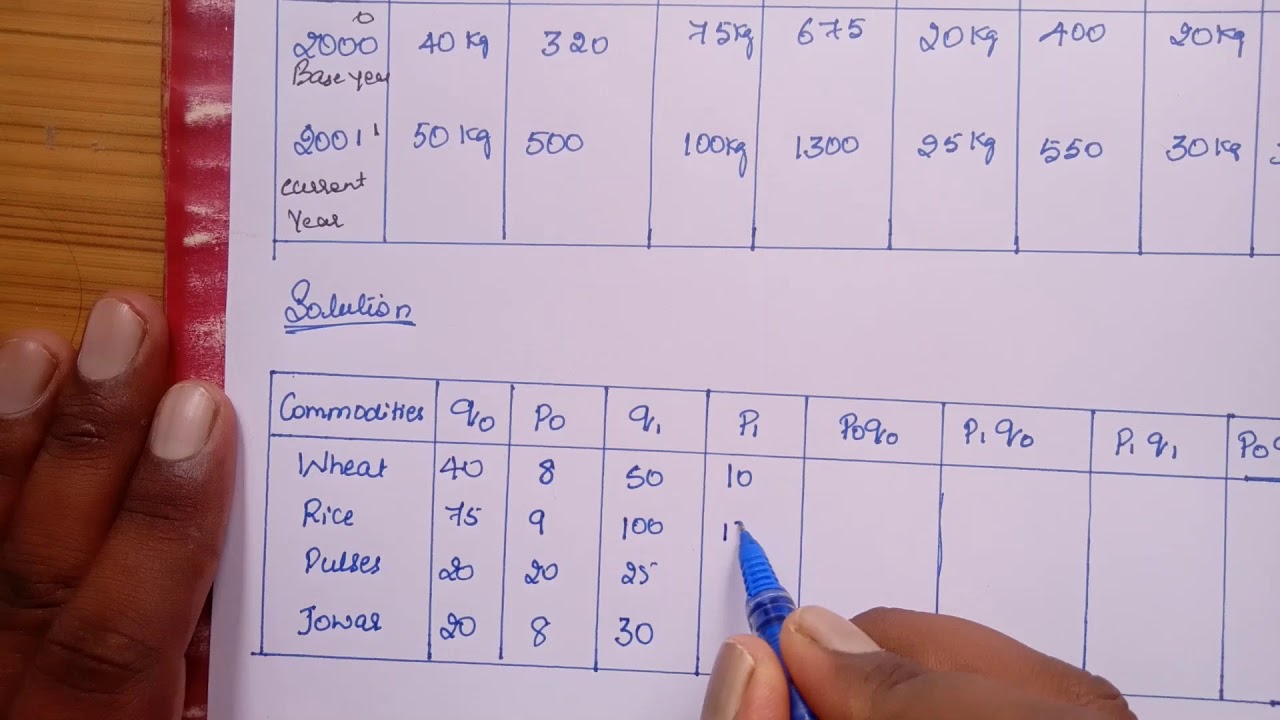 2000 0 40 Kg 320 75 Kg 675 20 Kg 400 20 Kg
Base year
2001 1 50 Kg 500 100 Kg 1300 25 Kg 550 30 Kg
current
Year
Solution
Commodities q0 P0 q1 P1 P0q0 P1q0 P1q1
Wheat 40 8 50 10
Rice 75 9 100
Pulses 20 20 25
Jowar 20 8 30